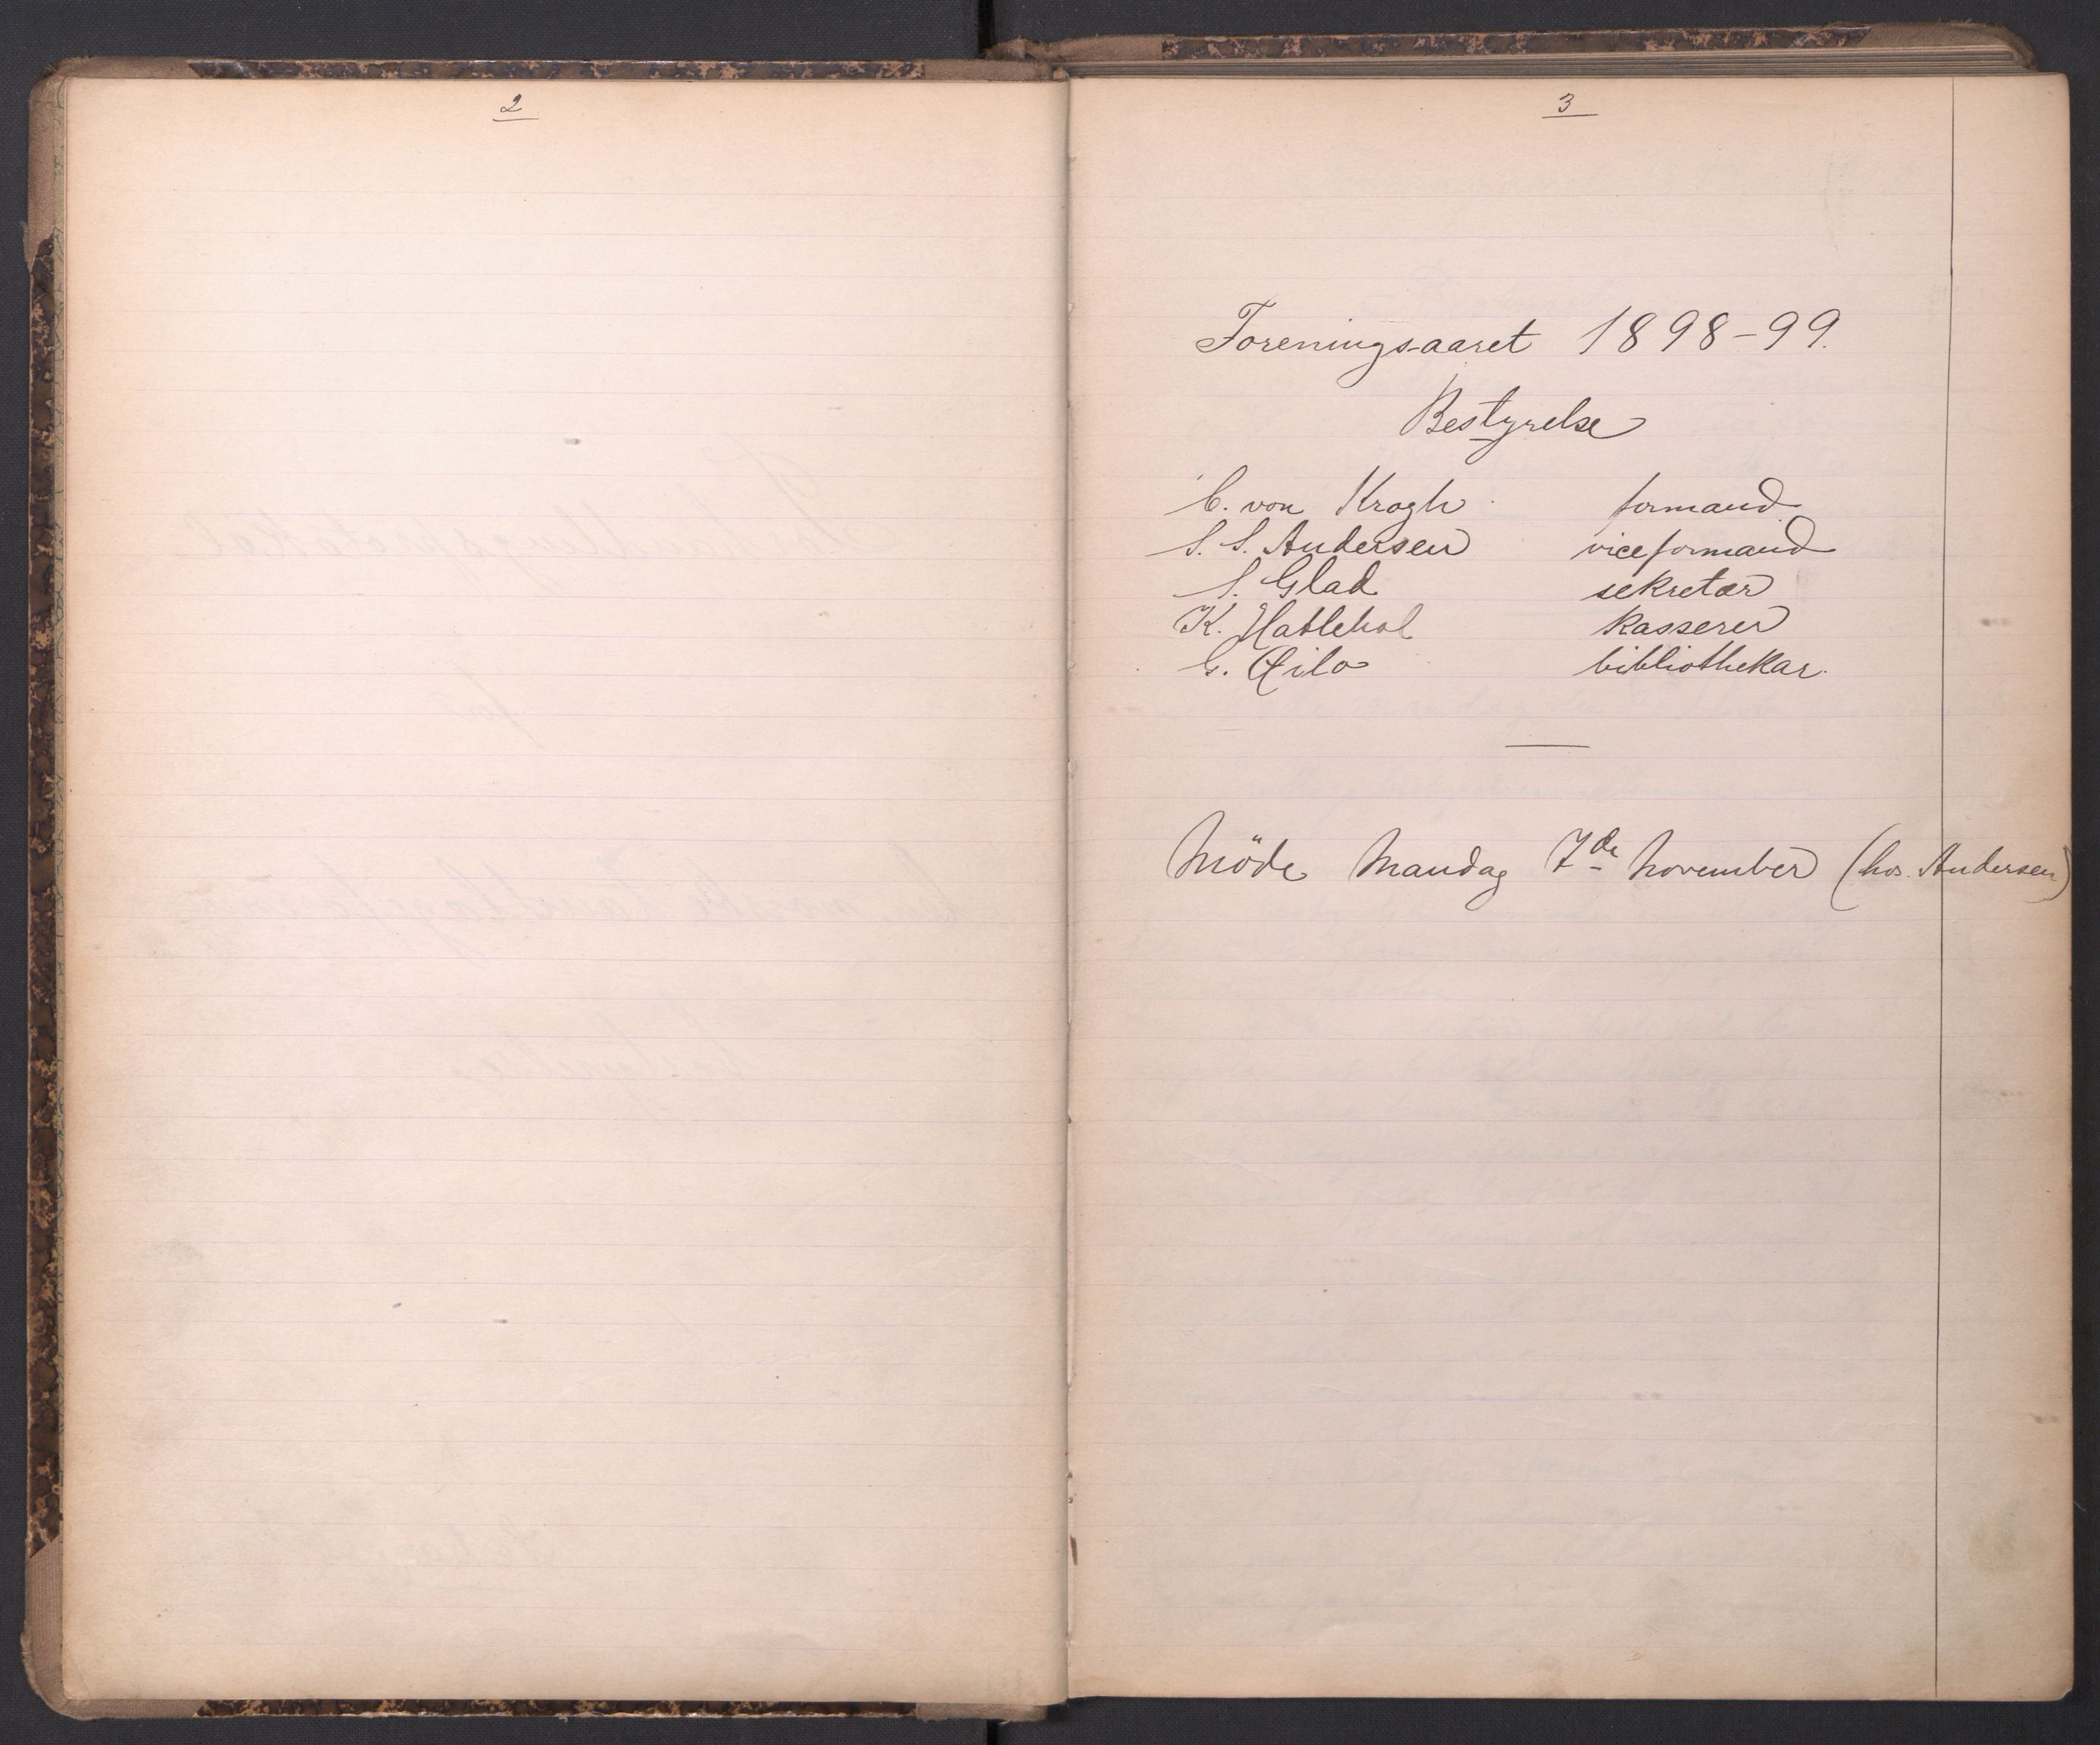 2
3
Foreningsaaret 1898-99.
Bestyrelse
C. von Krogh formand
S. S. Andersen viceformand
S. Glad sekretær
K. Hatlehol kasserer
G. Qilo bibliothekar.
Möde Mandag 7de November (hos Andersen)